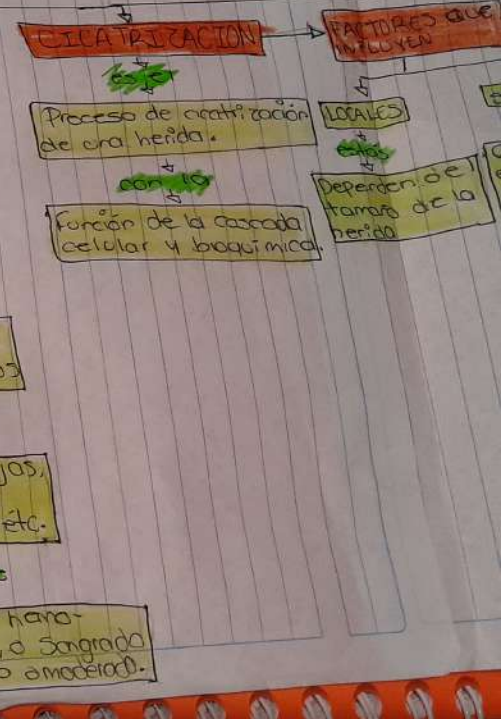 CICATRIZACION
es el
Proceso de cicatrización
de una herida.
con la
Función de la cascada
celular y bioquímica.
FACTORES QUE
INFLUYEN
LOCALES
estos
Dependen de
tamaño de la
herida
jos,
étc.
o Sangrado
o amoderado.